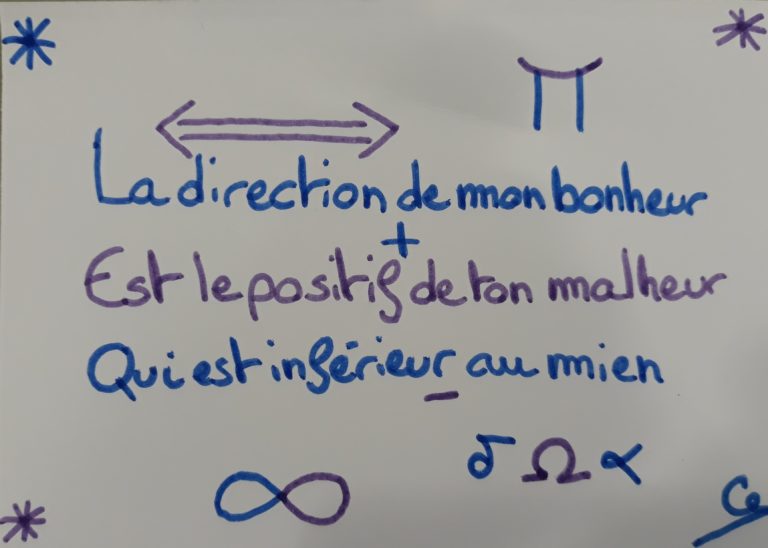 Π
La direction de mon bonheur
+
Est le positif de ton malheur
Qui est inférieur au mien
-
∞ δ Ω α
Ce